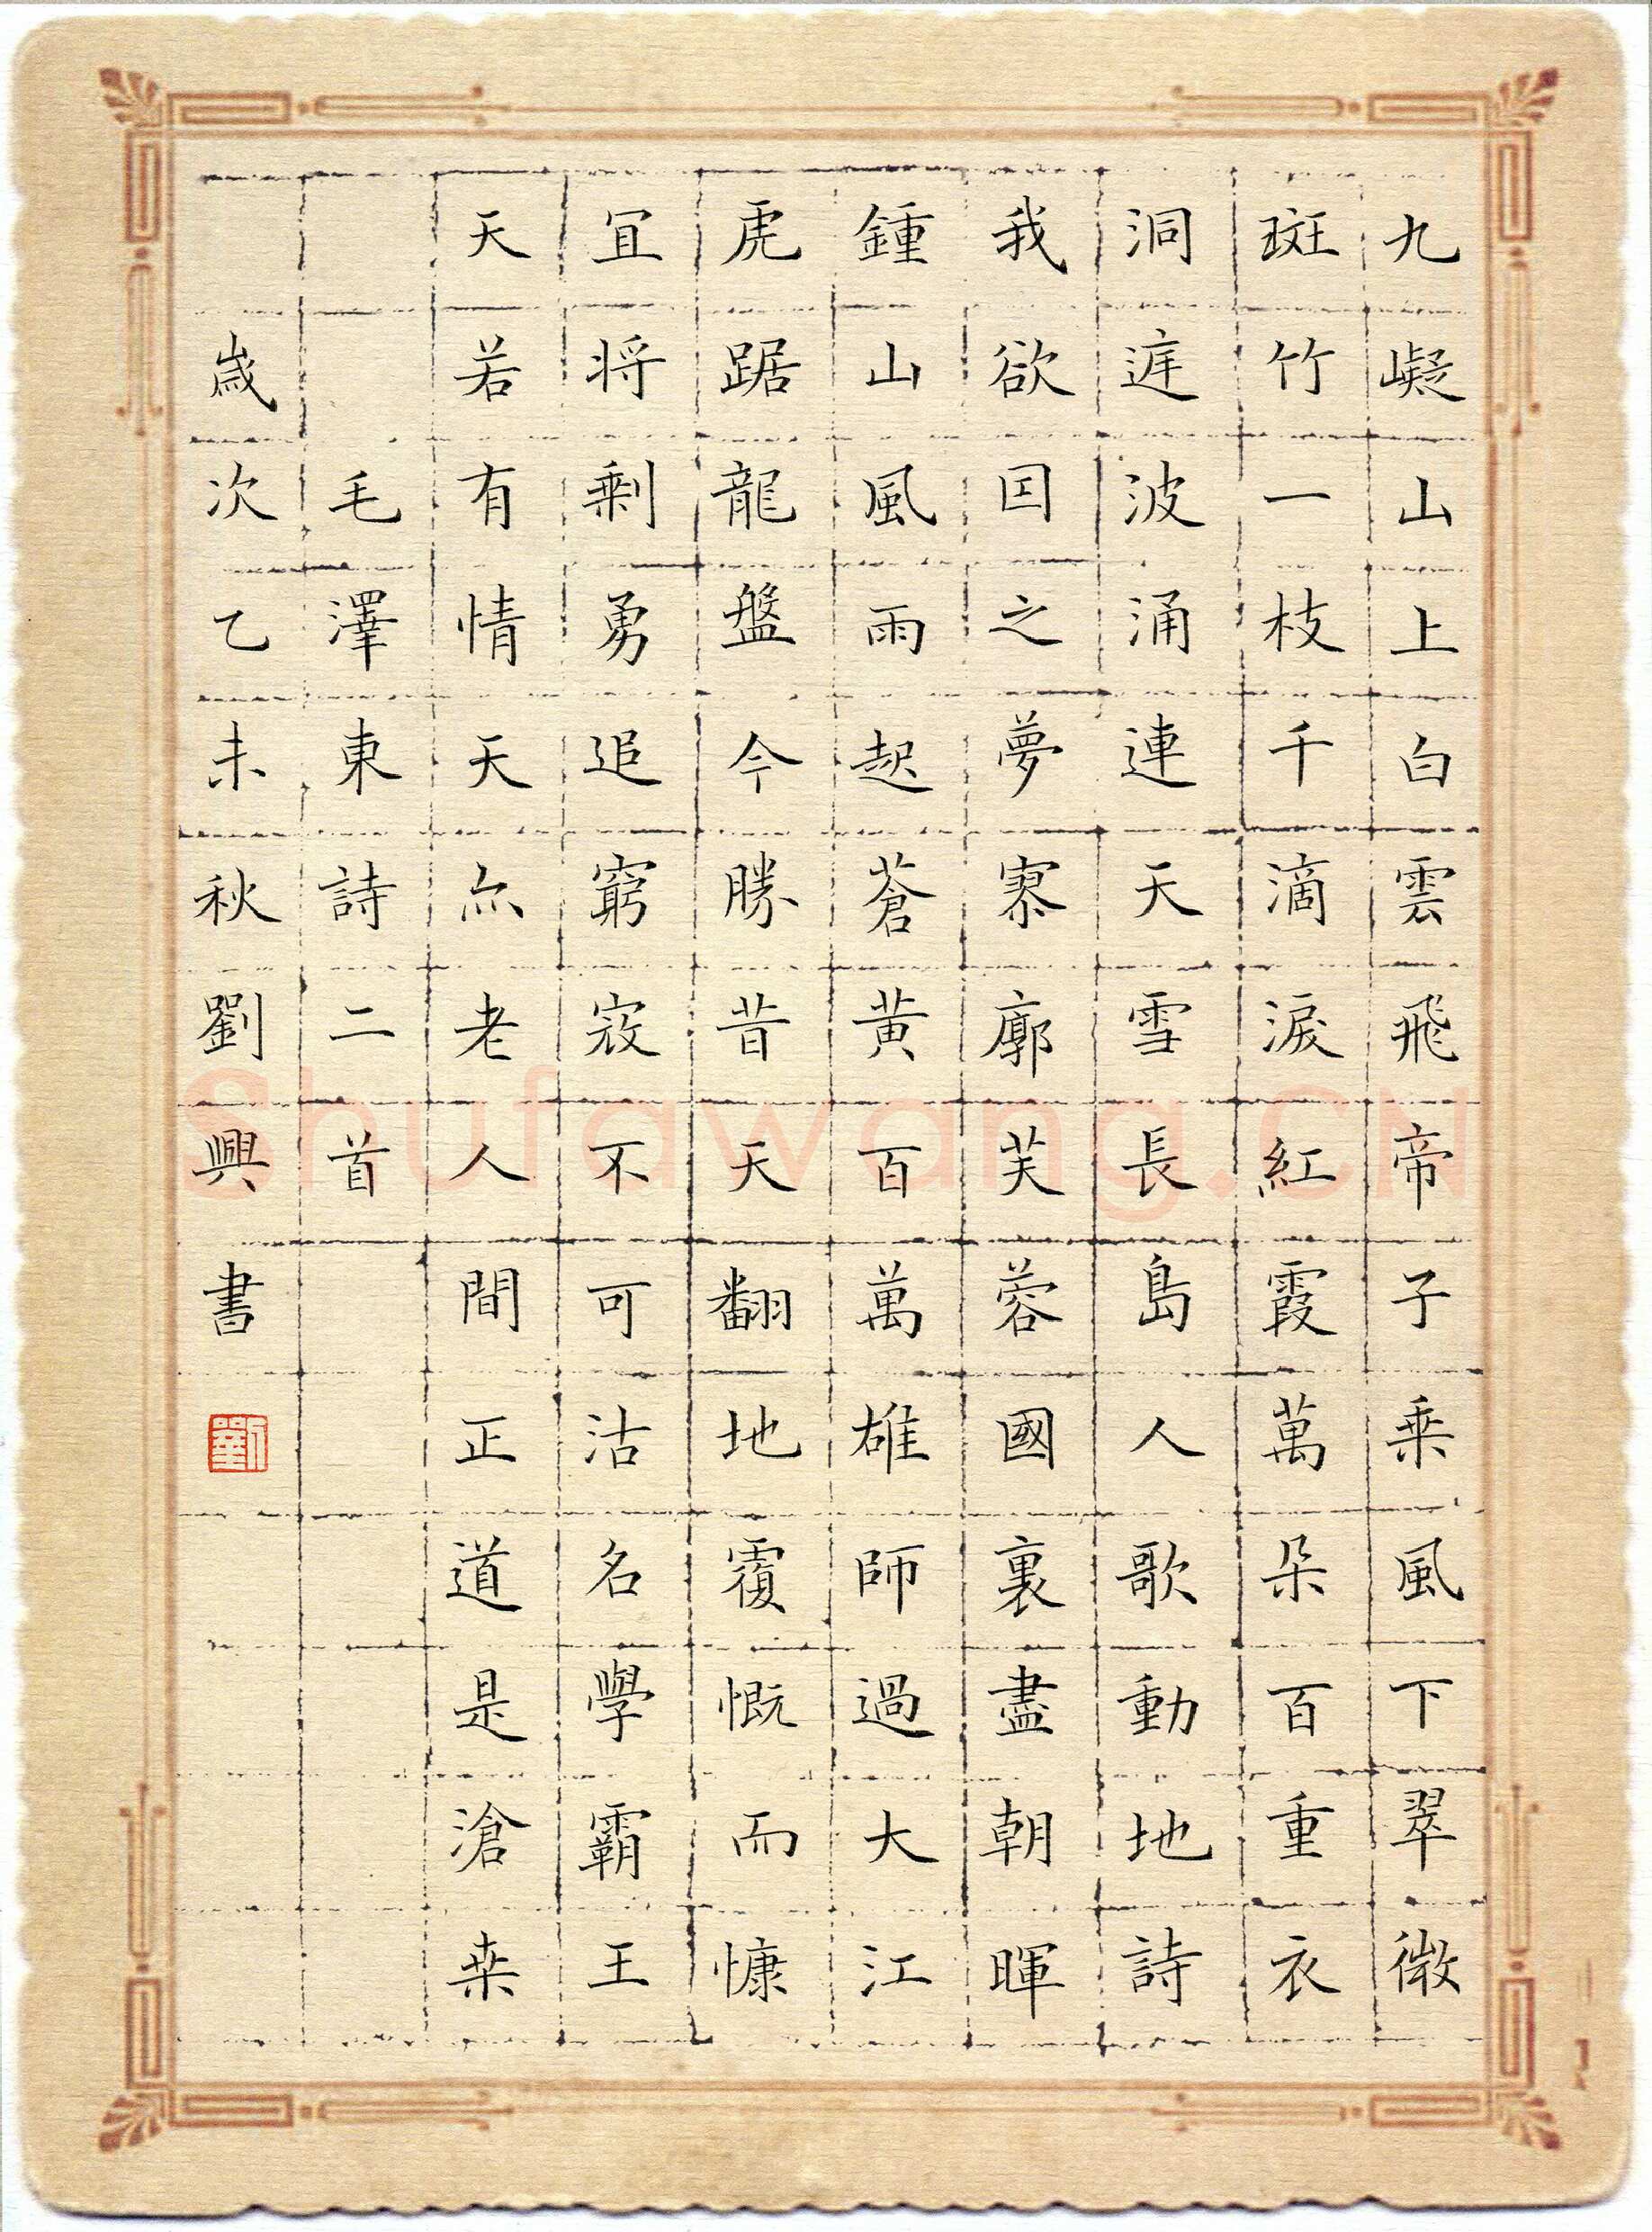 九嶷山上白雲飛帝子乘風下翠微
斑竹一枝千滴淚紅霞萬朵百重衣
洞庭波涌連天雪長島人歌動地詩
我欲因之夢寥廓芙蓉國裏盡朝暉
鍾山風雨起蒼黃百萬雄師過大江
虎踞龍盤今勝昔天翻地覆慨而慷
宜將剩勇追窮寇不可沽名學霸王
天若有情天亦老人間正道是滄桑
毛澤東詩二首
歲次乙未秋劉興書
劉
Shufawang.CN